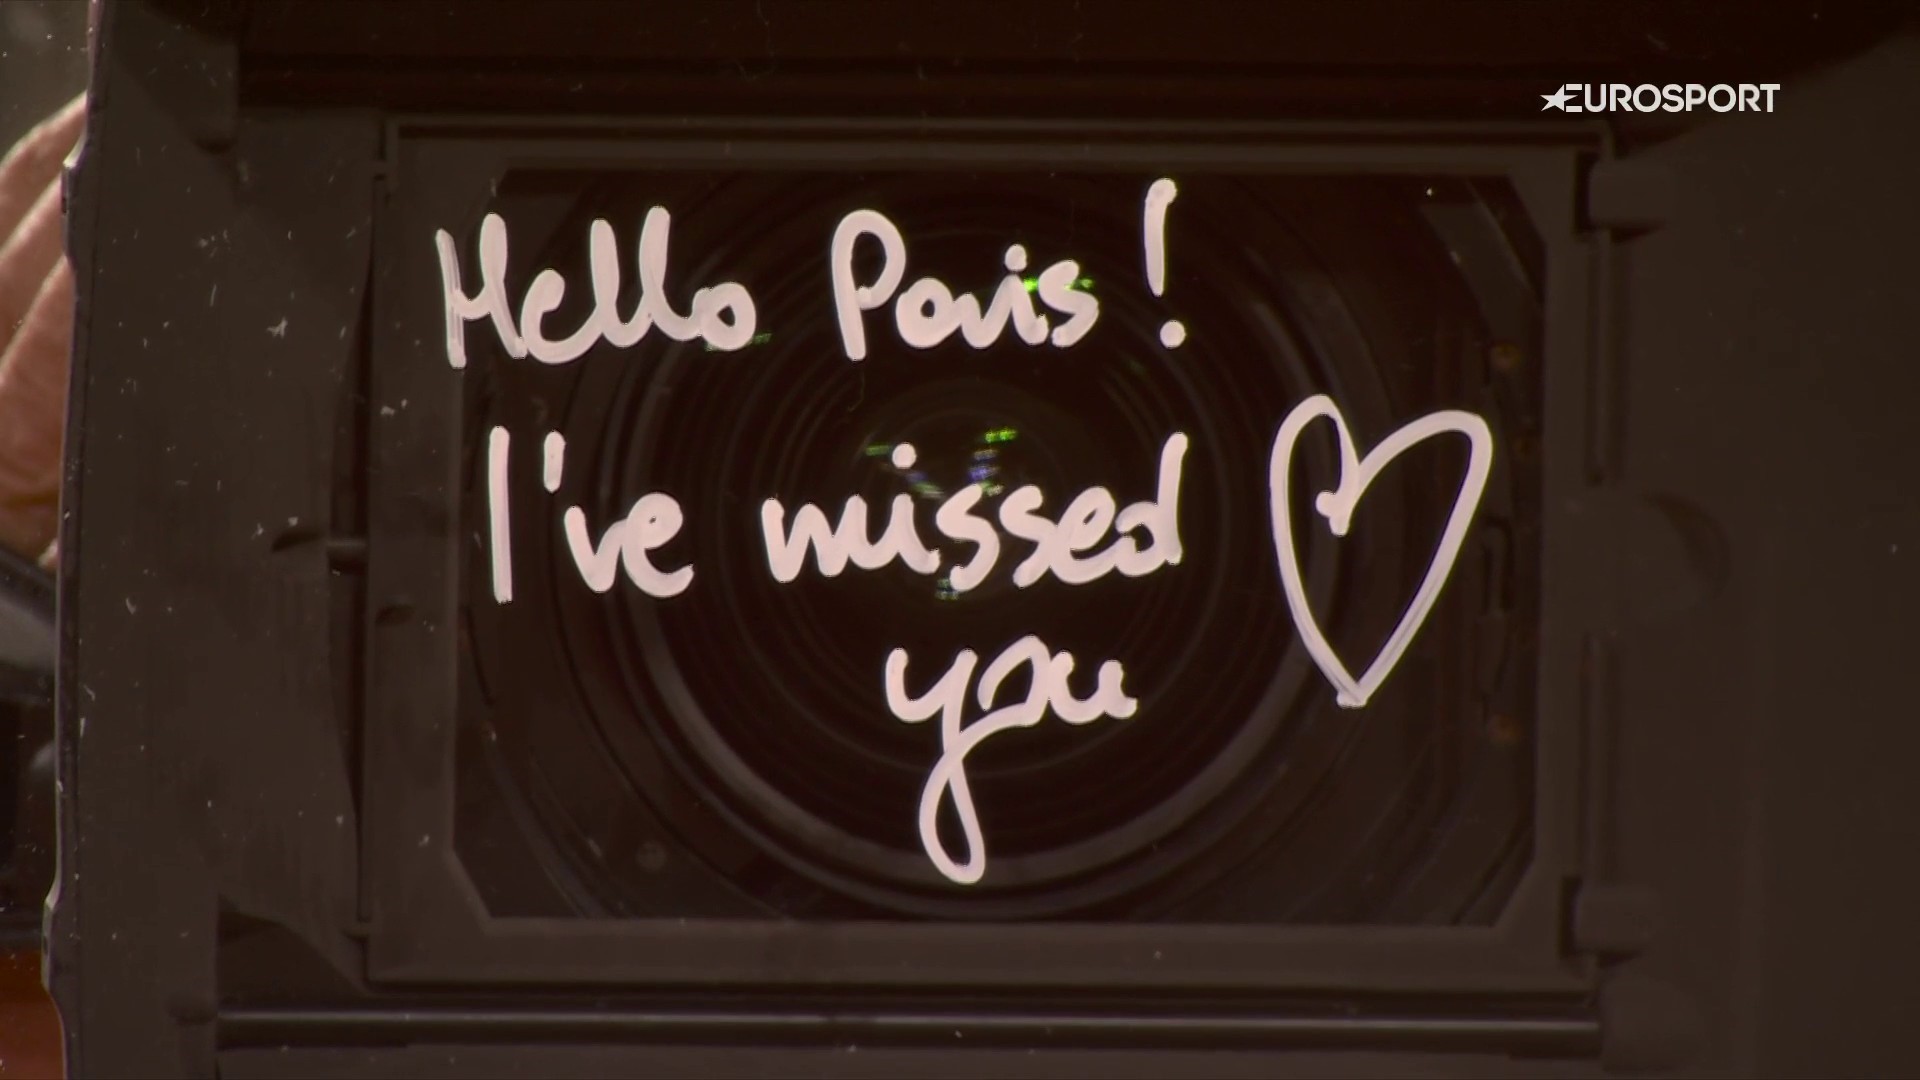 EUROSPORT
Hello Paris!
I've missed
you